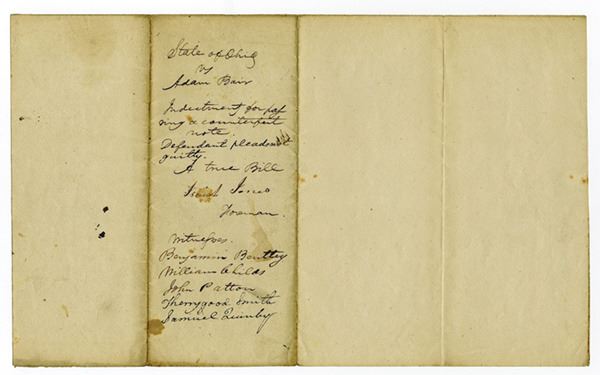 State of Ohio
vs
Adam Bair
Indictment for pas
sing a counterfeit
note.
Defendant pleads not
guilty.
A true Bill
Foreman.
Witnesses.
Benjamin Bentley
William Childs
John Patton
Therrygood Smith
Samuel Quinby